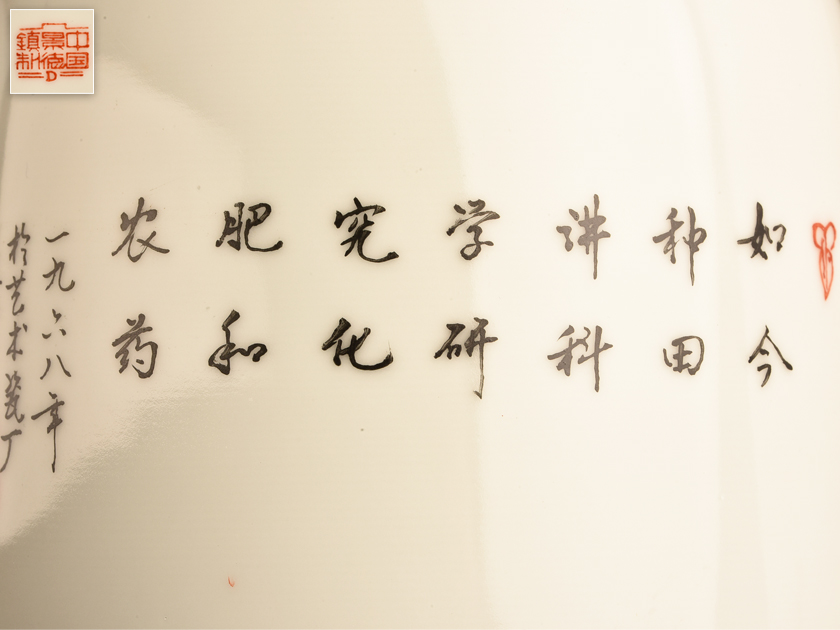 如今
种田
讲科
学研
究化
肥和
农药
一九六八年
於艺术瓷厂
中国
景德
鎮制
D